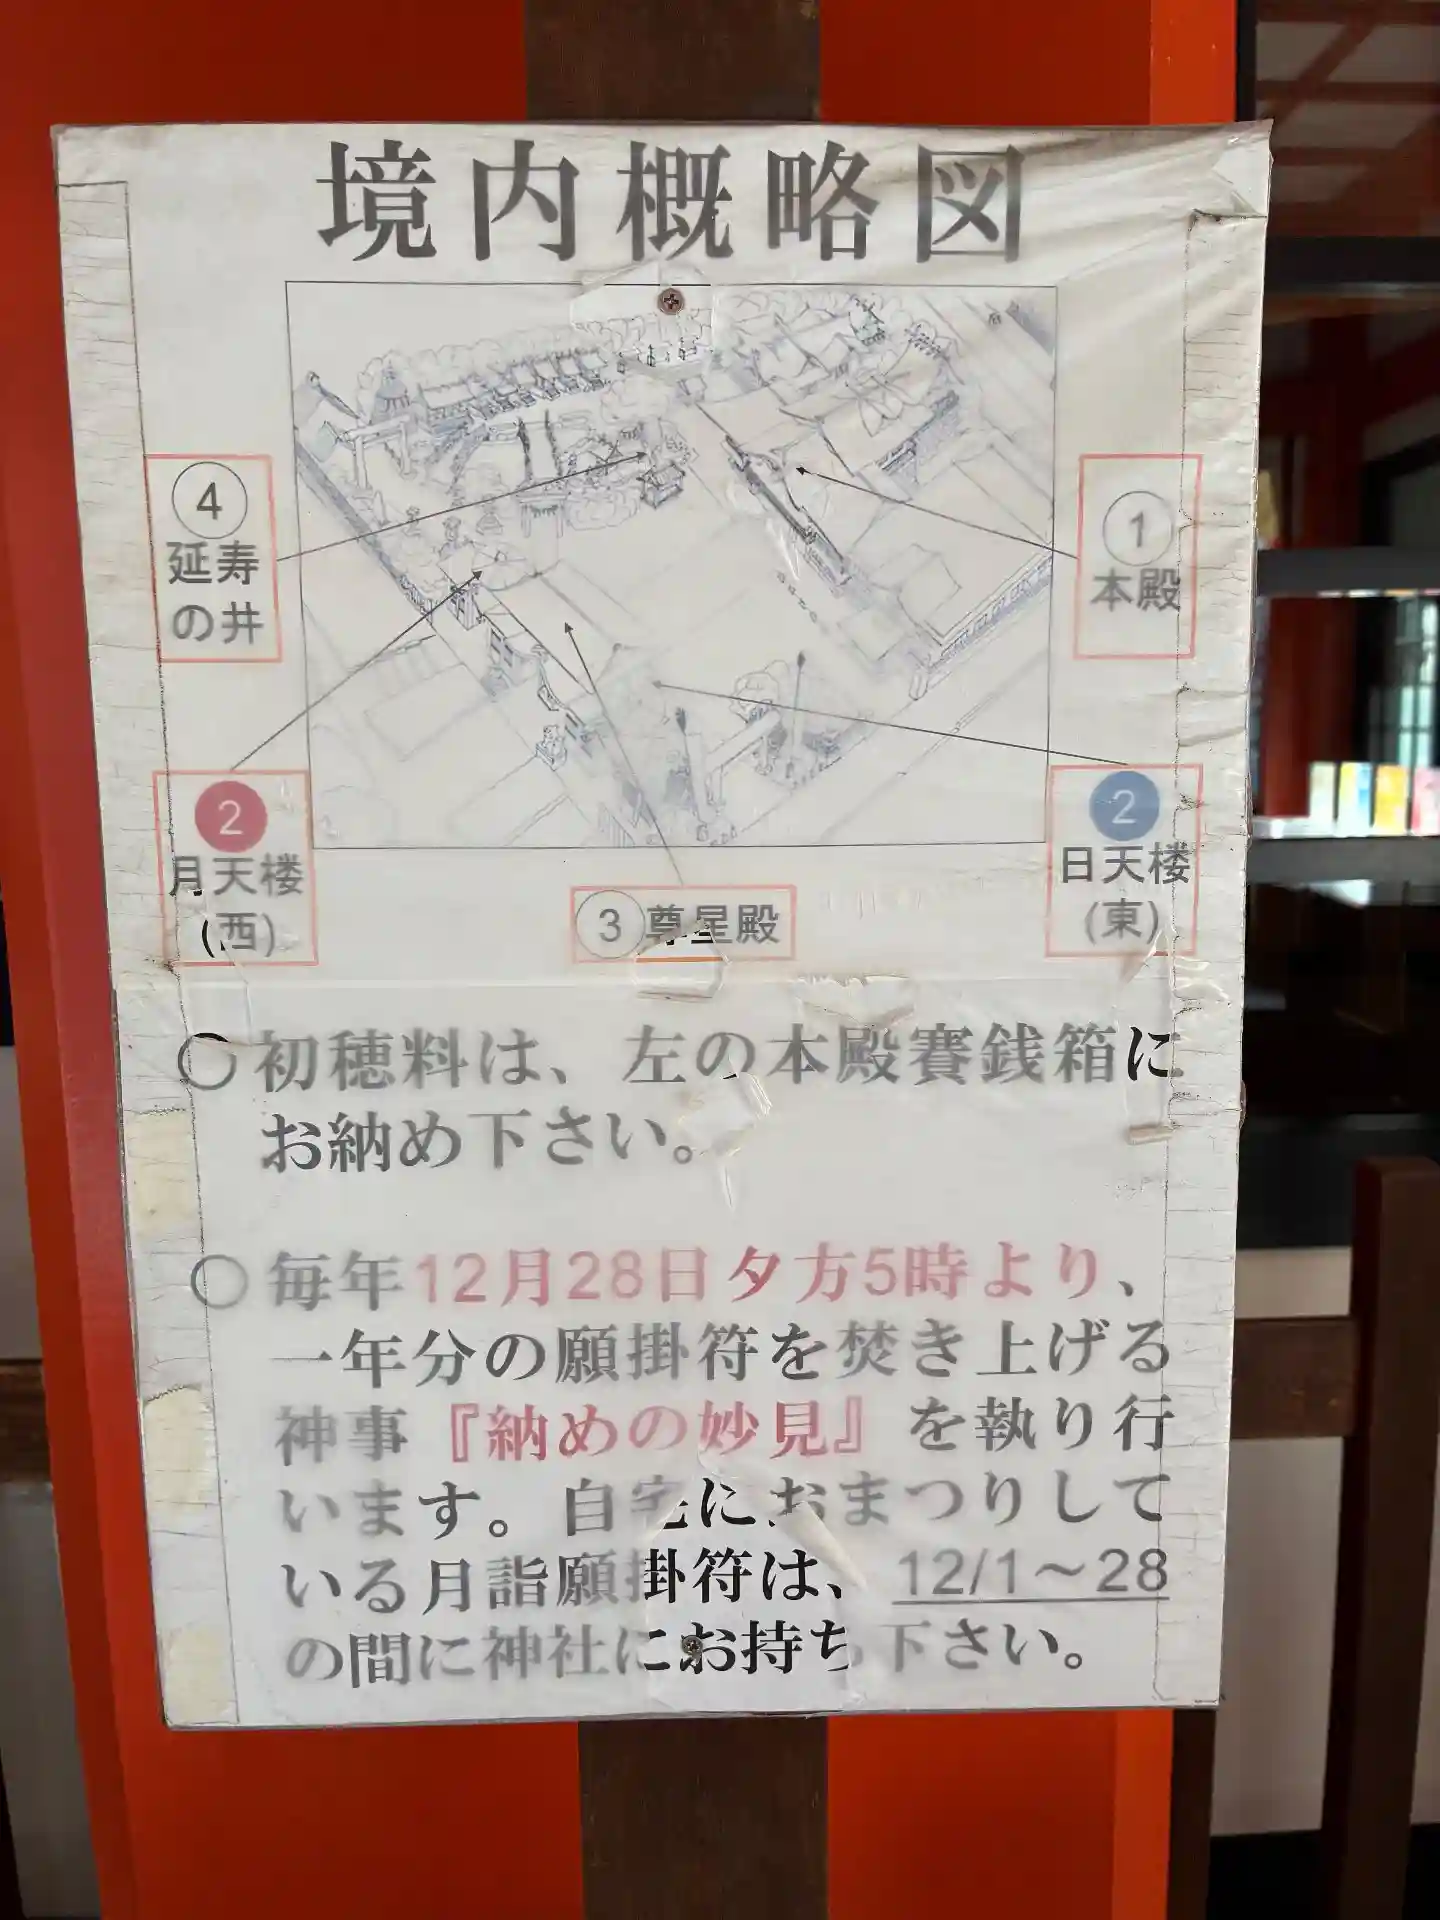 境内概略図
④
延寿
の井
①
本殿
2
月天楼
(西)
③尊星殿
2
日天楼
(東)
〇初穂料は、左の本殿賽銭箱に
お納め下さい。
〇毎年12月28日夕方5時より、
一年分の願掛符を焚き上げる
神事『納めの妙見』を執り行
います。自宅におまつりして
いる月詣願掛符は、12/1～28
の間に神社にお持ち下さい。